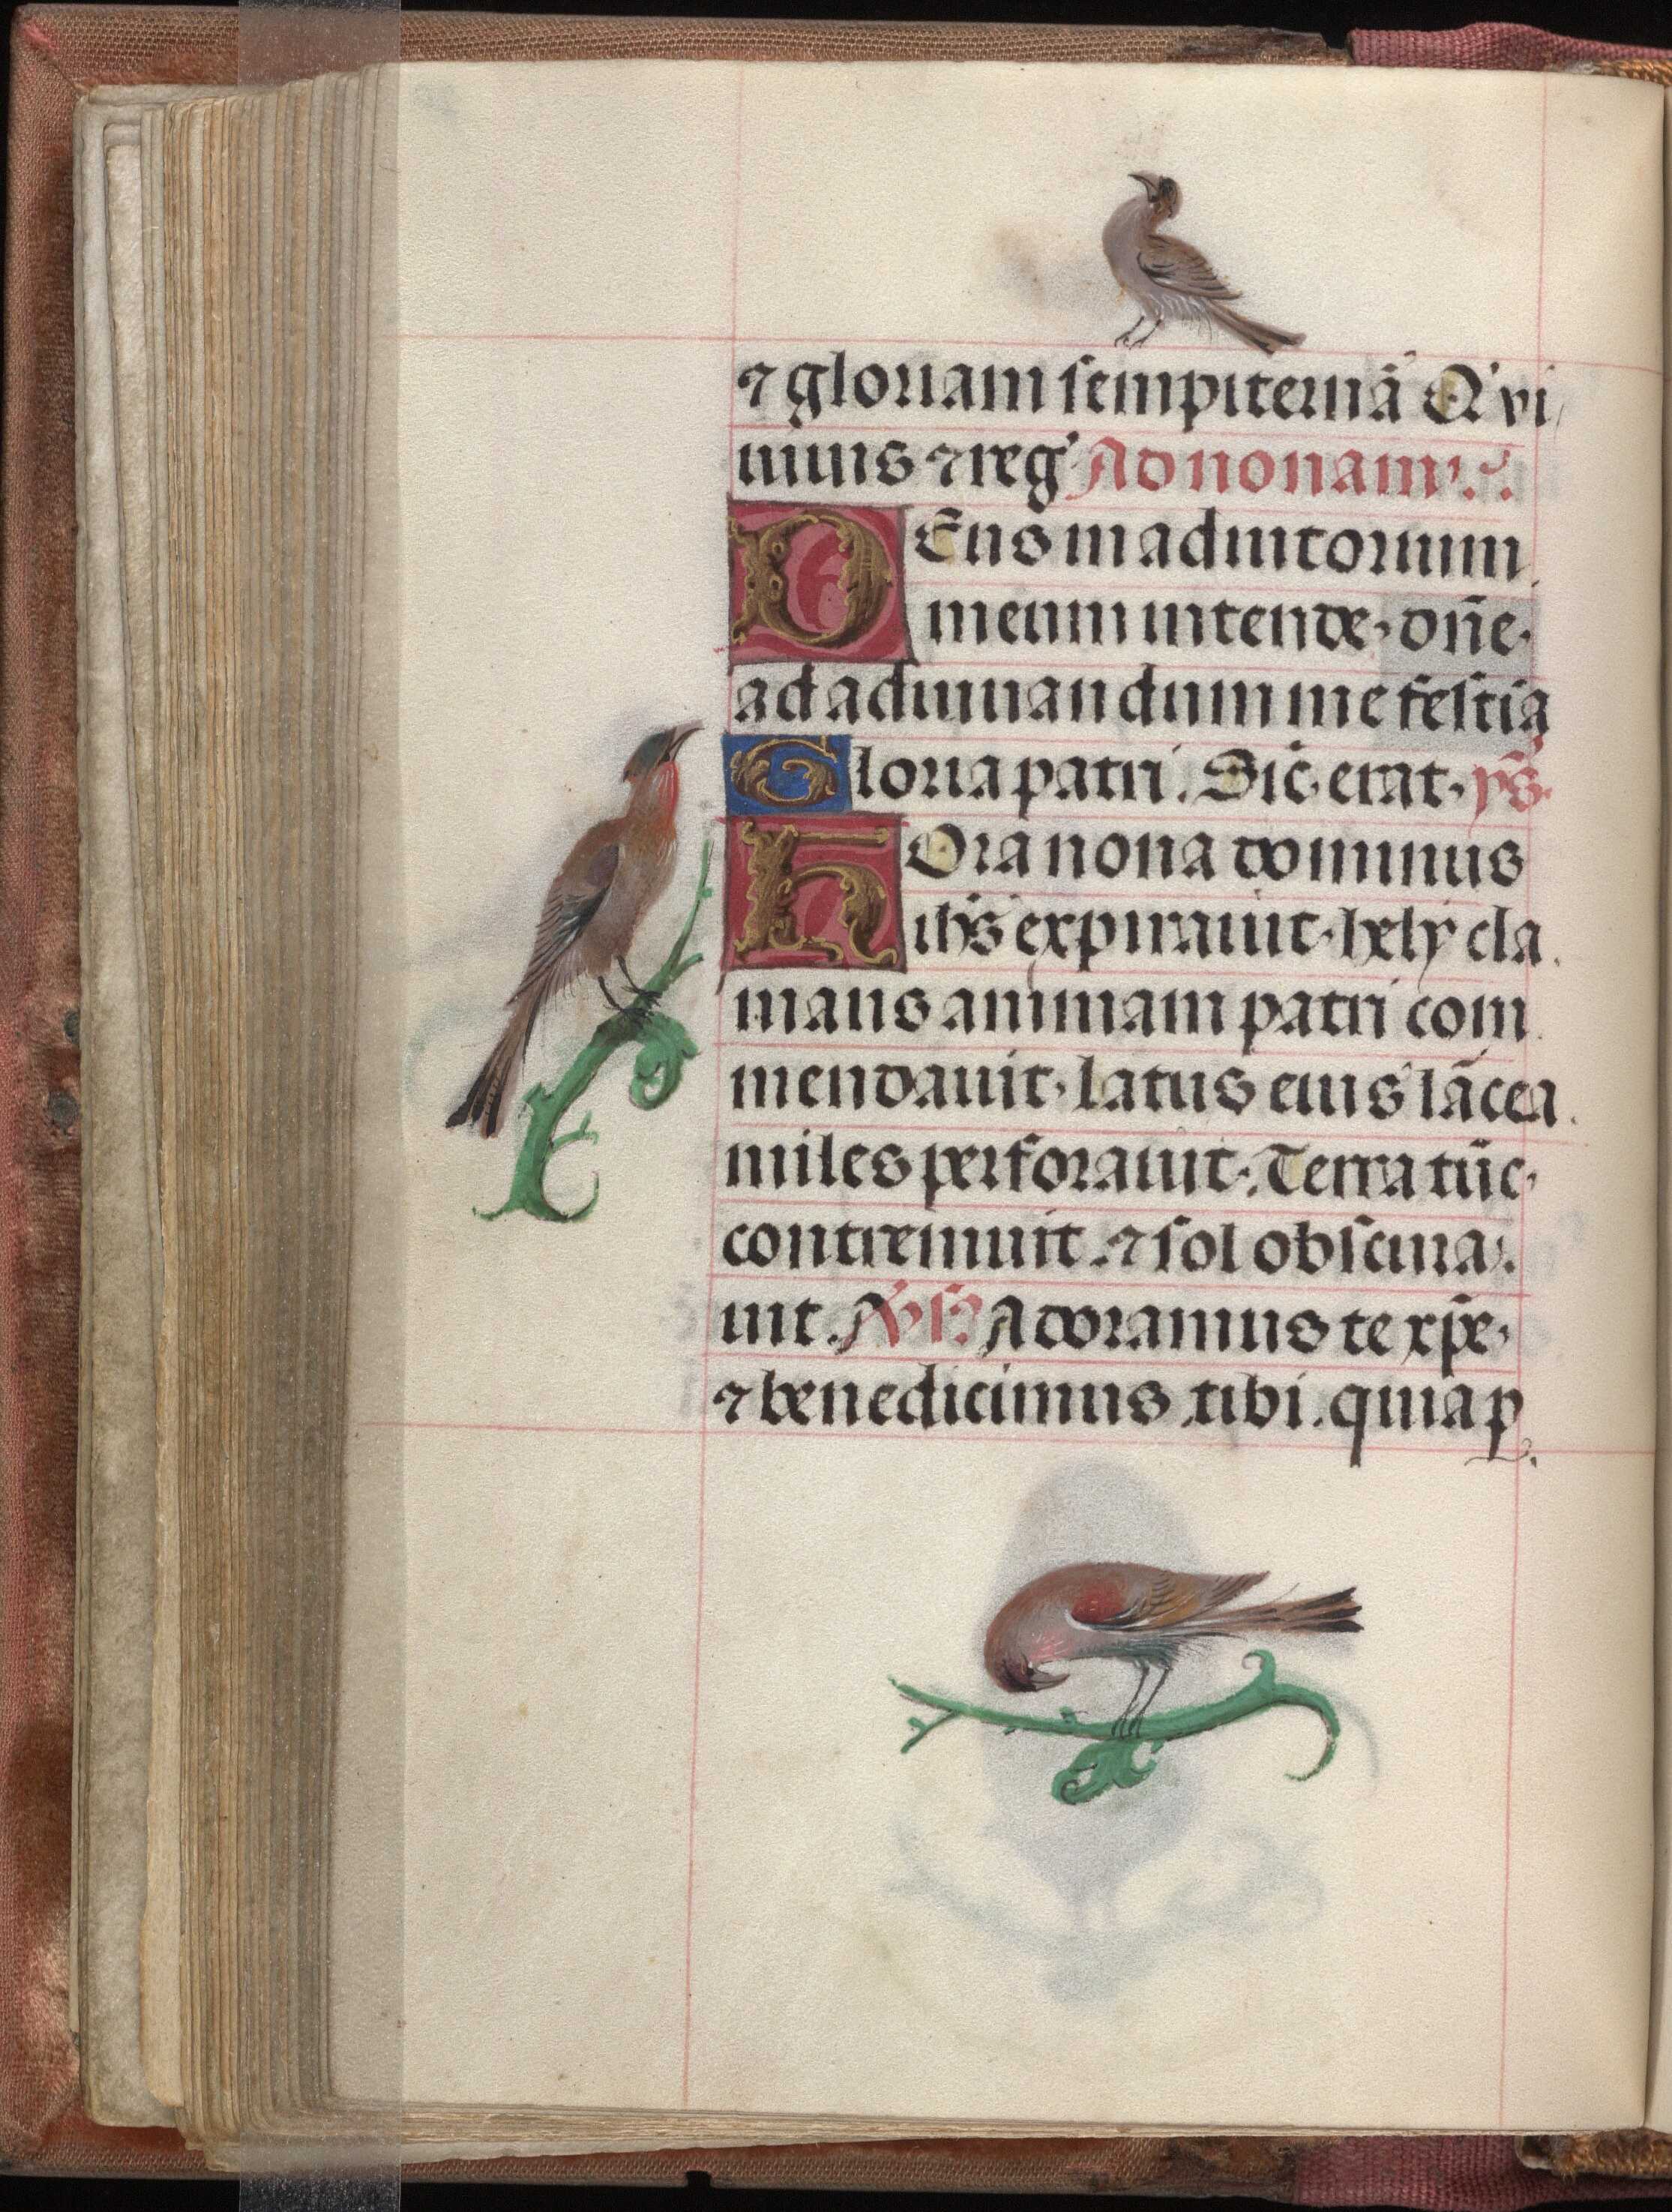 ⁊ gloriam sempiternā Q' vi
uiuis ⁊ reg' Ad nonam.
DEus in adiutorium
meum intende, dn̄e
ad adiuuandum me festia
Gloria patri. Sic̄ erat. ym̄s
HOra nona dominus
ih̄s expirauit. hely cla
mans animam patri com
mendauit. latus eius lācea
miles perforauit. Terra tūc
contremuit. ⁊ sol obscura
uit. Vs̄ Adoramus te xp̄e
⁊ benedicimus tibi. quia ꝑ